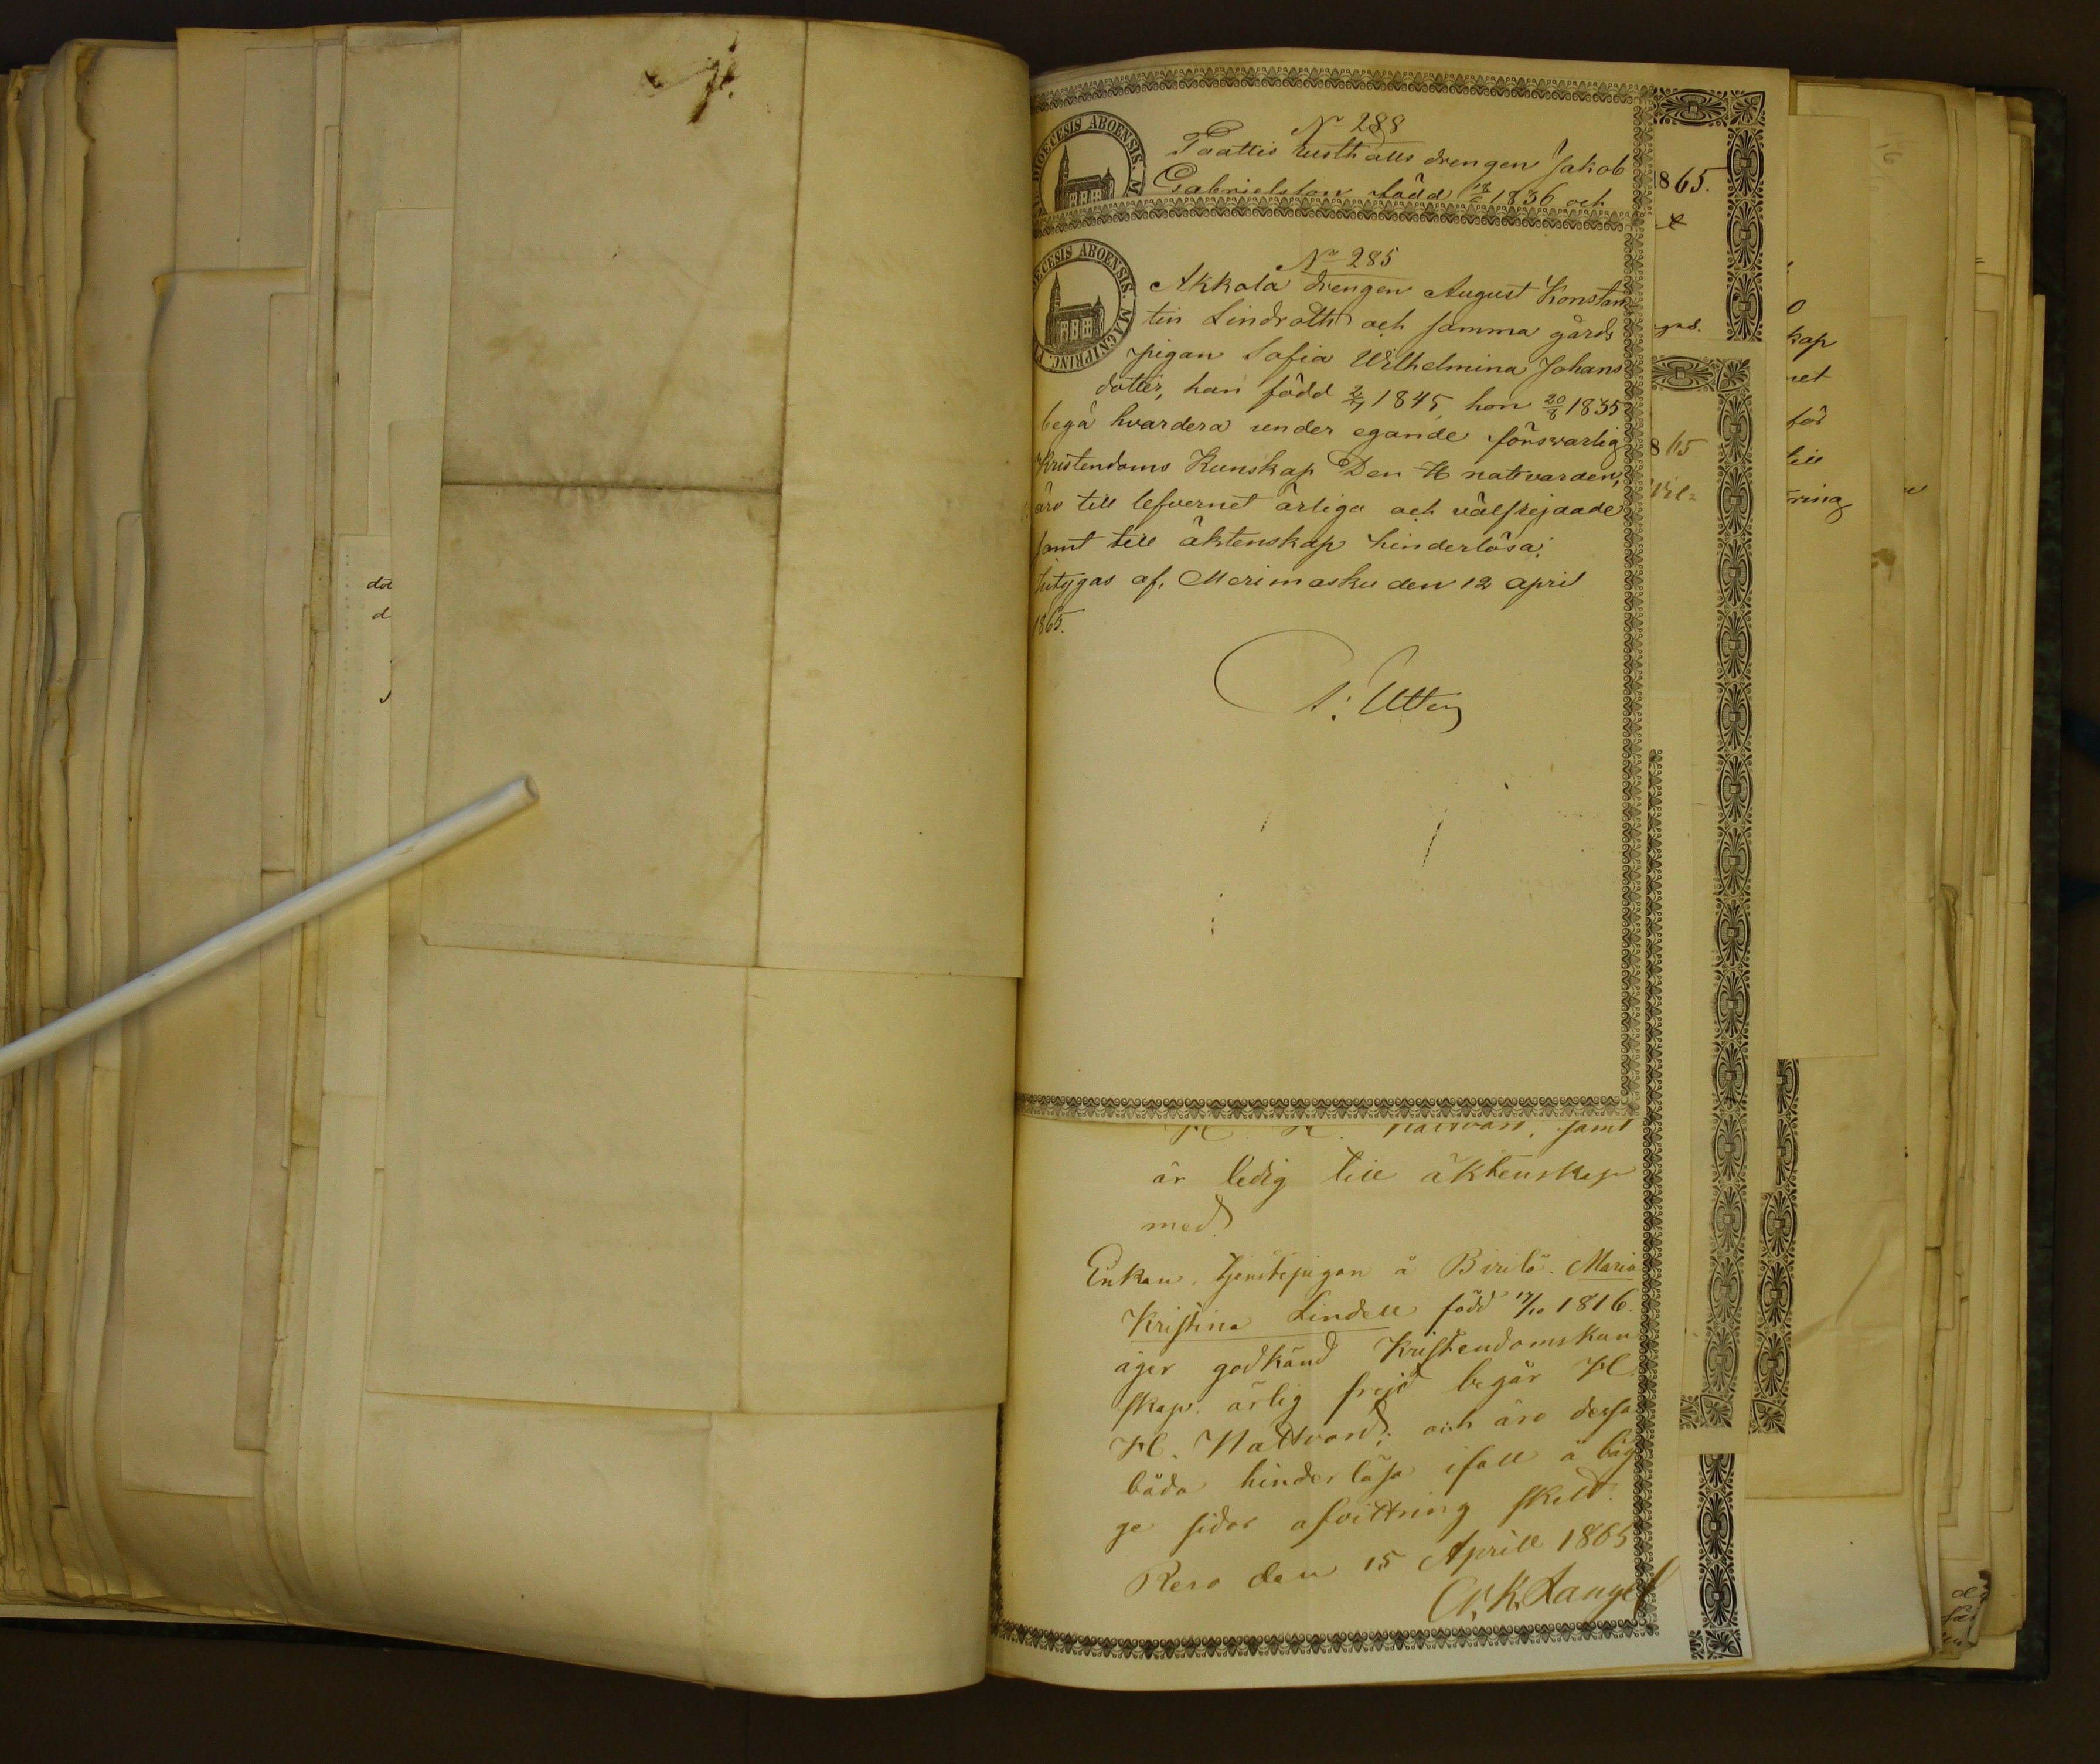 No 288
Paattis Rusthålls drengen Jakob
Gabrielsson född 1836 och
DIOECESIS ABOENSIS. M
No 285
Akkola drengen August Konstan
tin Lindroth och samma gårds
pigan Sofia Wilhelmina Johans
dotter, han född 2/7 1845, hon 20/8 1835
begå hvardera under egande försvarlig
Kristendoms Kunskap Den H nattvarden,
äro till lefvernet ärliga och välfrejdade
samt till äktenskap hinderlösa;
hitygas af. Merimasku den 12 april
1865.
ECESIS ABOENSIS. MAGNI PRINC.
Nattvard, samt
är ledig till äktenskap
med
Enkan. tjenstepigan å Maria
Kristina Lindell född 17/10 1816.
äger godkänd Kristendomskun
skap. ärlig frejd begår H.
H. Nattvard; och äro dessa
båda hinderlösa ifall å båg
ge sidor afvittring skett.
Reso den 15 Aprill 1865
Langel
1865.
gas.
865
kap
net
för
till
ring
dot
d